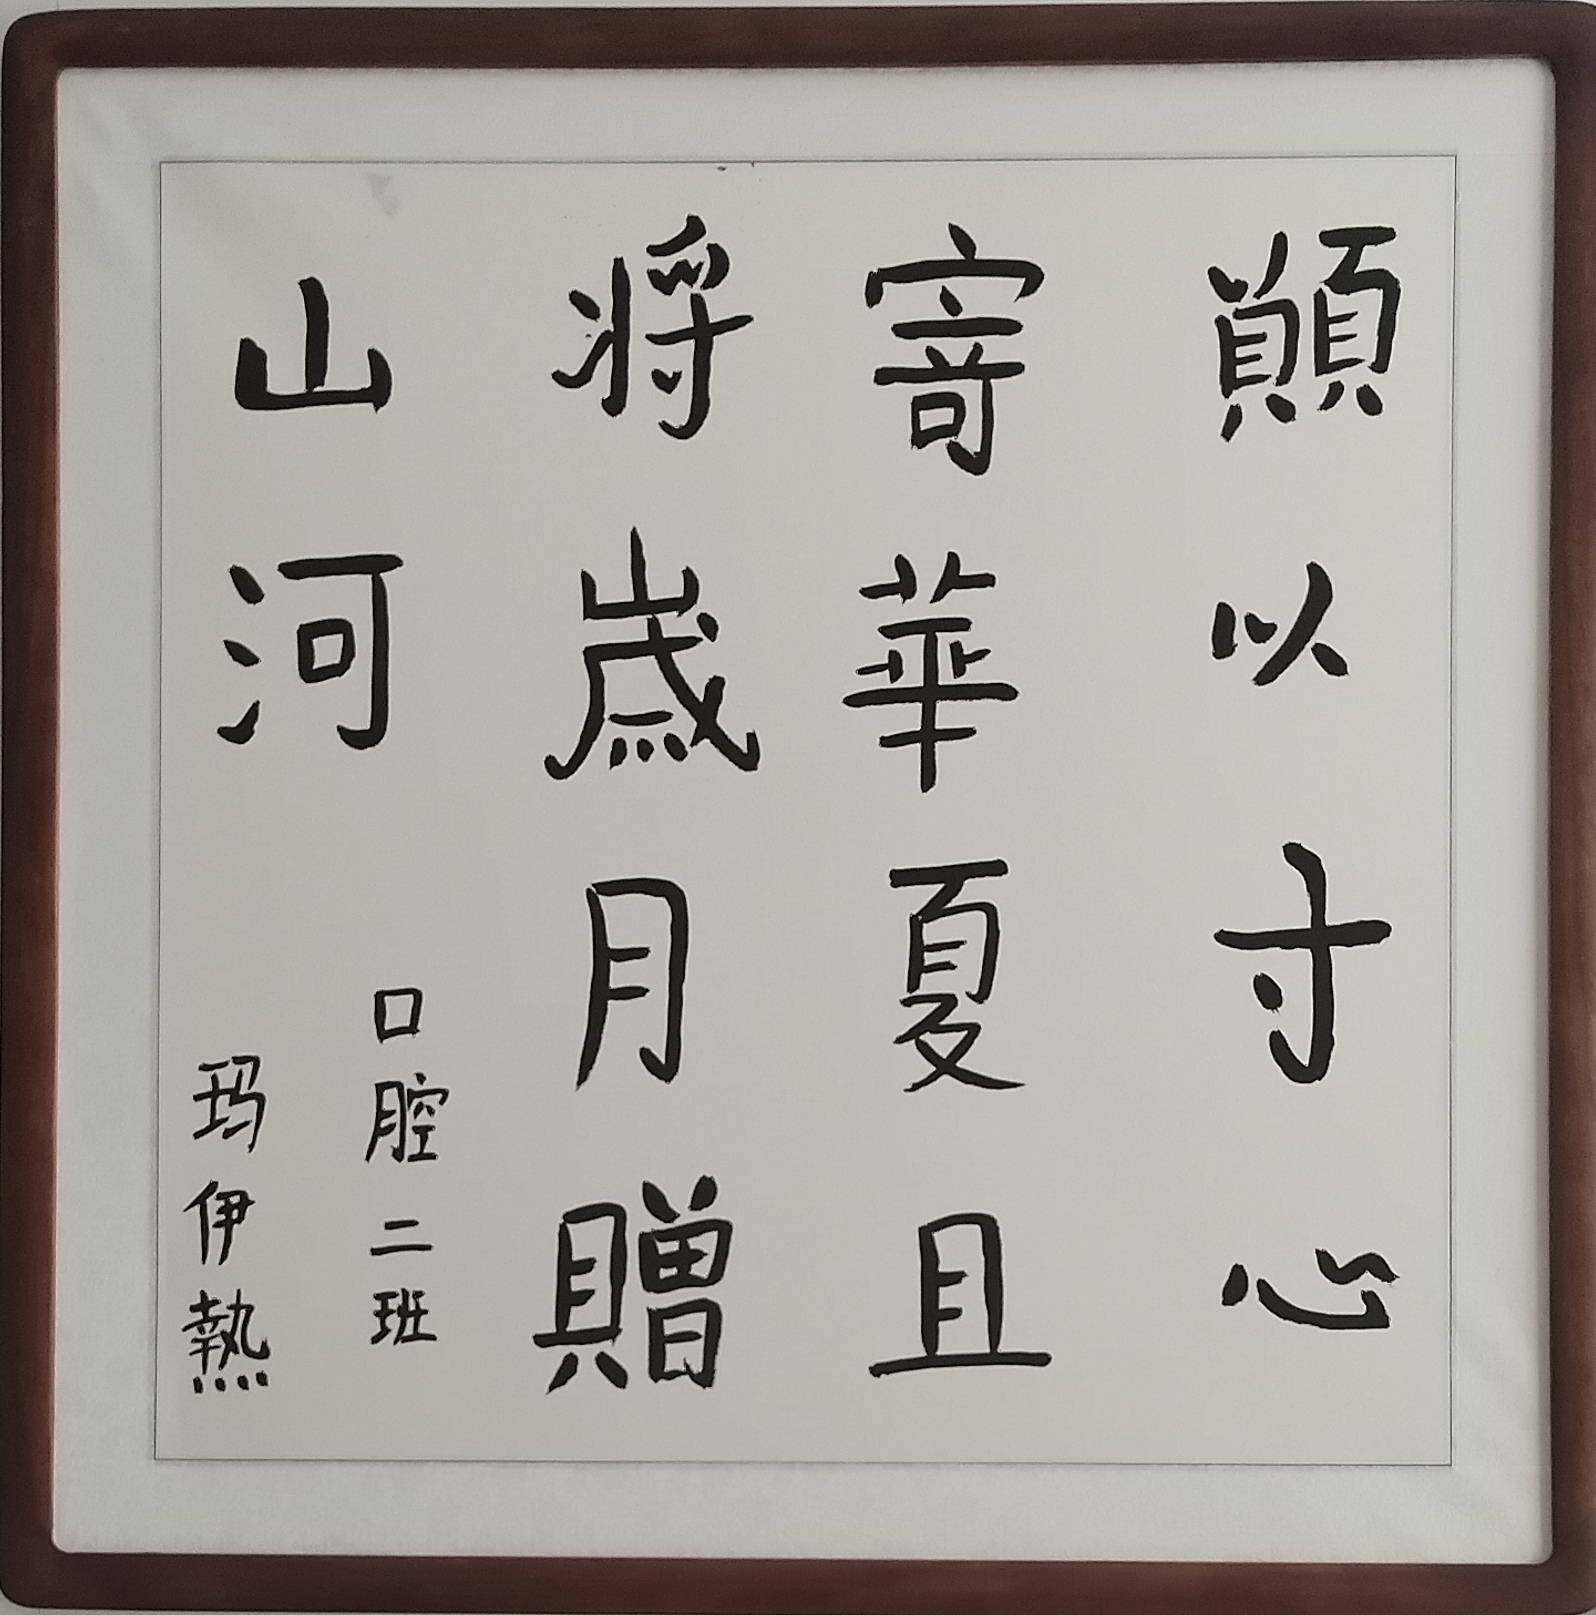 顚以寸心
寄華夏且
将歲月贈
山河
口腔二班
玛伊熱